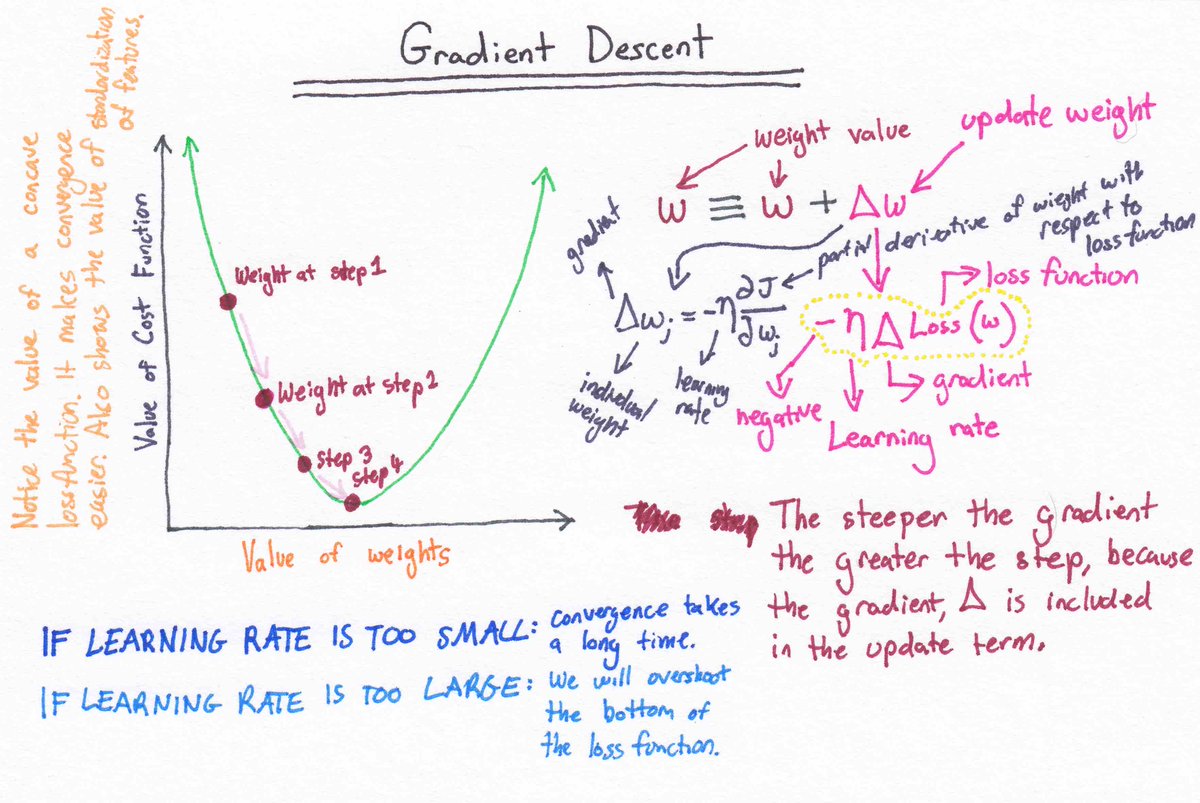 Gradient Descent
Notice the value of a concave
loss function. It makes convergence
easier. Also shows the value of standardization
of features.
Value of Cost Function
Weight at step 1
Weight at step 2
step 3
step 4
Value of weights
weight value
update weight
w ≡ w + Δw
gradient
partial derivative of wieght with
respect to
loss function
Δwj = -η ∂J/∂wj
loss function
-η Δ Loss(w)
individual
weight
learning
rate
negative
Learning rate
gradient
The steeper the gradient
the greater the step, because
the gradient, Δ is included
in the update term.
IF LEARNING RATE IS TOO SMALL: convergence takes
a long time.
IF LEARNING RATE IS TOO LARGE: We will overshoot
the bottom of
the loss function.